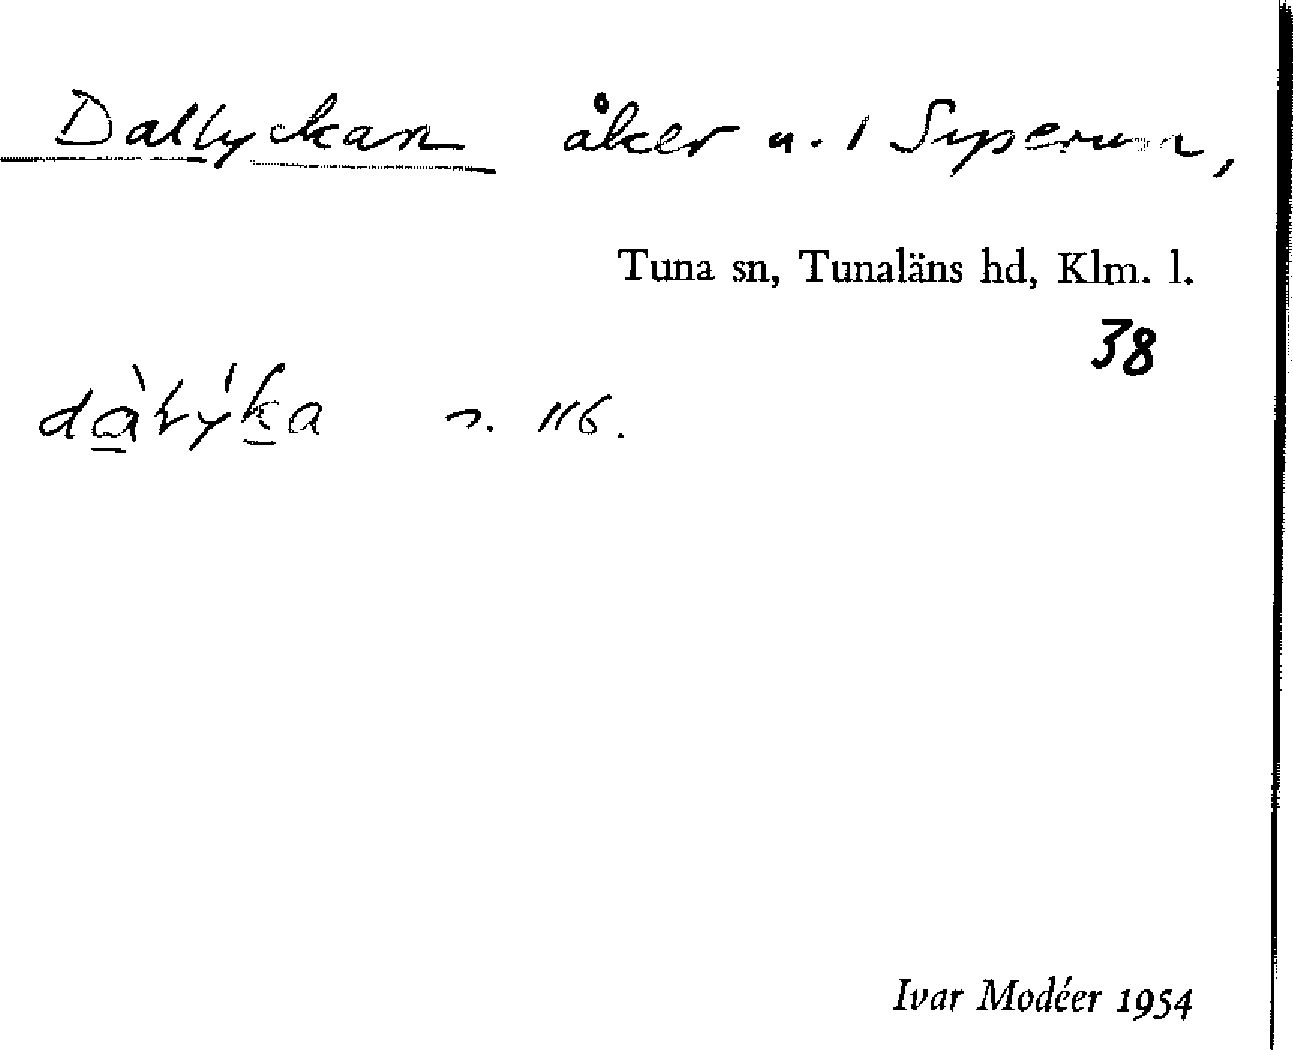 Dallyckan åker u. 1 Syserum,
Tuna sn, Tunaläns hd, Klm. l.
38
s. 116.
Ivar Modéer 1954